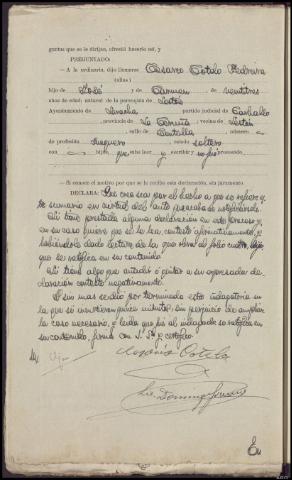 guntas que se le dirijan, ofreció hacerlo así, y
PREGUNTADO:
—A la ordinaria, dijo llamarse Cesáreo Cotelo Pedreira
(alias)
hijo de José y de Carmen de veintitres
años de edad: natural de la parroquia de Lestón
Ayuntamiento de Laracha partido judicial de Carballo
provincia de La Coruña vecino de Lestón
calle de número
de profesión estado soltero
con hijos, que sabe leer y escribir y no fué
—Si conoce el motivo por que se le recibe esta declaración, sin juramento
DECLARA: Que cree sea por el hecho a que se refiere y
te sumario en virtud del auto que acaba de notificársele.
Si tiene prestada alguna declaración en este proceso y,
en su caso quiere que se le lea, contestó afirmativamente, y
habiéndole dado lectura de la que obra al folio cuatro, dijo
que se ratifica en su contenido.
Si tiene algo que añadir o quitar a su expresada de
claración contestó negativamente.
Y sin mas se dió por terminada esta indagatoria en
la que se invirtieron quince minutos, sin perjuicio de ampliar
la caso necesario, y leída que fué al indagado, se ratifica en
su contenido firma con S. Sª y certifico.
Cesáreo Cotelo